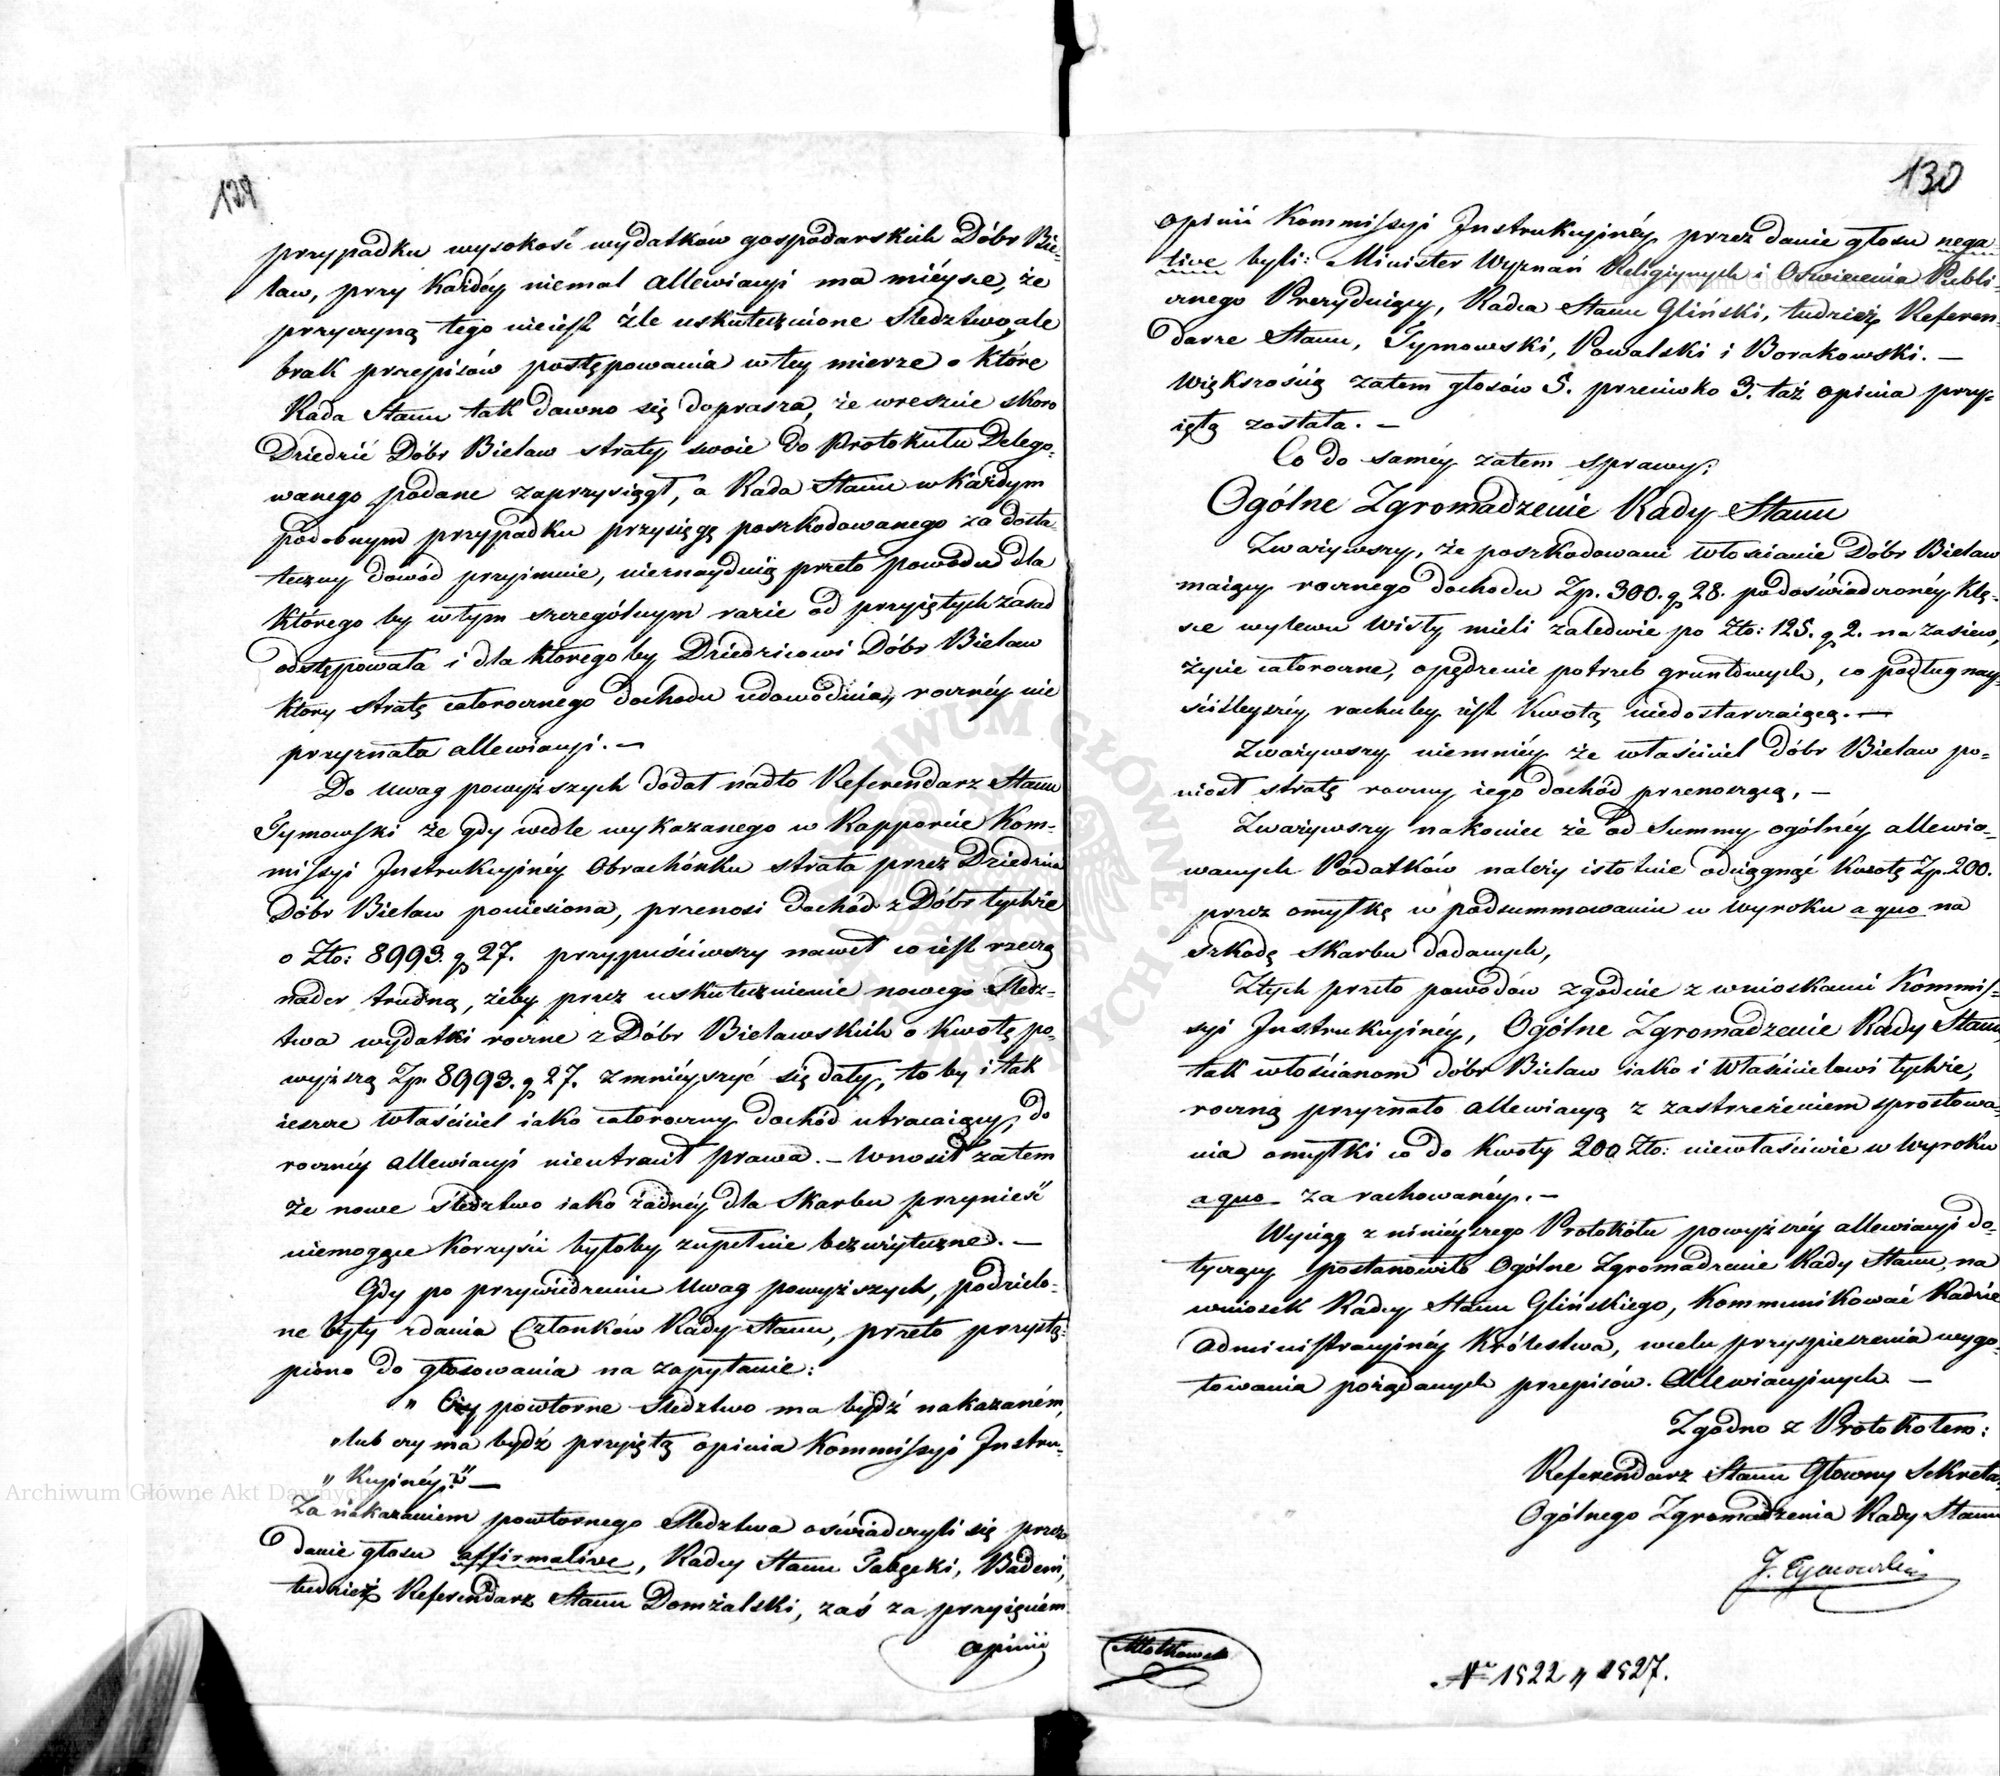 129
przypadku wysokość wydatków gospodarskich Dóbr Bie-
law, przy każdéy niemal allewiacyi ma mieysce, że
przyczyną tego nieiest źle uskutecznione Sledztwo, ale
brak przepisów postępowania w tey mierze o które
Rada Stanu tak dawno się doprasza, że wreszcie skoro
Dziedzić Dóbr Bielaw straty swoie do Protokułu Delego-
wanego podane zaprzysiągł, a Rada Stanu w każdym
podobnym przypadku przysięgę poszkodowanego za dosta-
teczny dowód przyimuie, nieznayduią przeto powodu dla
którego by w tym szczególnym razie od przyiętych zasad
odstępowała i dla którego by Dziedzicowi Dóbr Bielaw
ktory stratę całorocznego dochodu udowodnia, rocznéy nie
przyznała allewiacyi. —
Do uwag powyższych dodał nadto Referendarz Stanu
Tymowski że gdy wedle wykazanego w Rapporcie Kom-
missyi Instrukcyinéy Obrachónku strata przez Dziedzica
Dóbr Bielaw poniesiona, przenosi dochód z Dóbr tychże
o Zło: 8993. g 27. przypuściwszy nawet co iest rzeczą
nader trudną, żeby przez uskutecznienie nowego Sledz-
twa wydatki roczne z Dóbr Bielawskich o kwotę po-
wyższą Zp. 8993. g 27. zmnieyszyć się dały, to by i tak
ieszcze właściciel iako całoroczny dochód utracaiący, do
rocznéy allewiacyi nieutracił prawa. — Wnosił zatem
że nowe śledztwo iako żadnéy dla Skarbu przynieść
niemogące korzyści byłoby zupełnie bezużyteczne. —
Gdy po przywiedzeniu uwag powyższych, podzielo-
ne były zdania Członków Rady Stanu, przeto przystą-
piono do głosowania na zapytanie:
" Czy powtorne Sledztwo ma bydź nakazaném,
" lub czy ma bydź przyiętą opinia Kommissyi Instru-
" kcyinéy?" —
Za nakazaniem powtornego Sledztwa oświadczyli się przez
danie głosu affirmative, Radcy Stanu Tabęcki, Badeni,
tudzież Referendarz Stanu Domżalski, zaś za przyięciem
opinii
130
opinii Kommissyi Instrukcyinéy przez danie głosu nega-
tive byli: Minister Wyznań Religiynych i Oświecenia Publi-
cznego Prezyduiący, Radca Stanu Gliński, tudzież Referen-
darze Stanu, Tymowski, Powalski i Borakowski. —
Większością zatem głosów 5. przeciwko 3. taż opinia przy-
iętą została. —
Co do saméy zatem sprawy:
Ogólne Zgromadzenie Rady Stanu
Zważywszy, że poszkodowani włościanie Dóbr Bielaw
maiący rocznego dochodu Zp. 300. g 28. po doświadczonéy klę-
sce wylewu Wisły mieli zaledwie po Zło: 125. g 2. na zasiew,
życie całoroczne, opędzenie potrzeb gruntowych, co podług nay-
ściśleyszéy rachuby iest kwotą niedostarczaiącą. —
Zważywszy niemniéy że właściciel dóbr Bielaw po-
niosł stratę roczny iego dochód przenoszącą, —
Zważywszy nakoniec że od Summy ogólnéy allewio-
wanych Podatków należy istotnie odciągnąć kwotę Zp. 200.
przez omyłkę w podsummowaniu w Wyroku a quo na
szkodę Skarbu dodanych,
Z tych przeto powodów zgodnie z wnioskami Kommis-
syi Instrukcyinéy, Ogólne Zgromadzenie Rady Stanu,
tak włościanom dóbr Bielaw iako i Właścicielowi tychże,
roczną przyznało allewiacyą z zastrzeżeniem sprostowa-
nia omyłki co do kwoty 200 Zło: niewłaściwie w Wyroku
a quo zarachowanéy. —
Wyciąg z ninieyszego Protokółu powyższéy allewiacyi do-
tyczący postanowiło Ogólne Zgromadzenie Rady Stanu, na
wniosek Radcy Stanu Glińskiego, kommunikować Radzie
Administracyinéy Królestwa, w celu przyspieszenia wygo-
towania pożądanych przepisów Allewiacyinych —
Zgodno z Protokołem:
Referendarz Stanu Głowny Sekreta
Ogólnego Zgromadzenia Rady Stanu
J. Tymowski
No 1522 1527.
Archiwum Główne Akt Dawnych